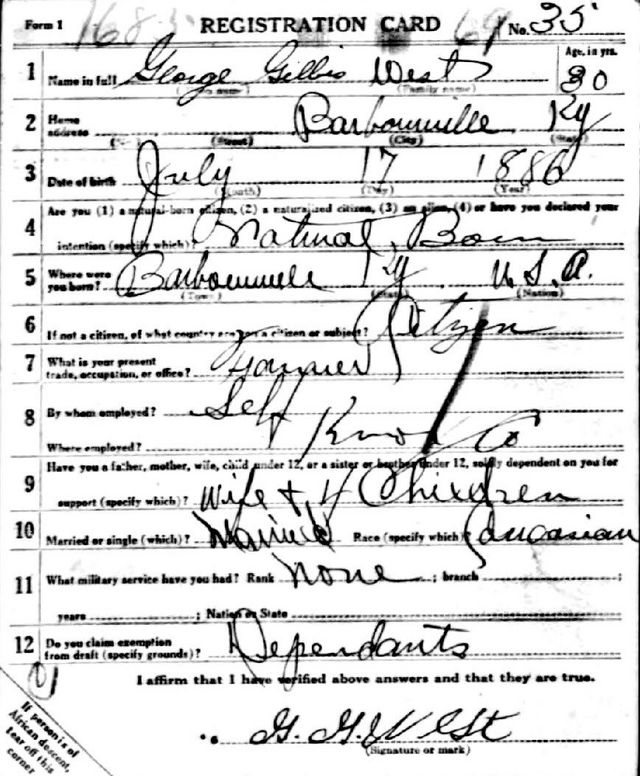 Form 1 1683 REGISTRATION CARD 69 No. 35
1 Name in full George Gillis West Age, in yrs. 30
(Family name)
2 Home address Barbourville Ky
(No.) (Street) (City) (State)
3 Date of birth July 17 1886
(Month) (Day) (Year)
4 Are you (1) a natural-born citizen, (2) a naturalized citizen, (3) an alien, (4) or have you declared your
intention (specify which)? Natural Born
5 Where were you born? Barbourville Ky U.S.A.
(Town) (State) (Nation)
6 If not a citizen, of what country are you a citizen or subject? Citizen
7 What is your present trade, occupation, or office? Farmer
8 By whom employed? Self
Where employed? Knox Co
9 Have you a father, mother, wife, child under 12, or a sister or brother under 12, solely dependent on you for
support (specify which)? Wife + 4 Children
10 Married or single (which)? Married Race (specify which)? Caucasian
11 What military service have you had? Rank None ; branch ;
years ; Nation or State
12 Do you claim exemption from draft (specify grounds)? Dependants
I affirm that I have verified above answers and that they are true.
G. G. West
(Signature or mark)
If person is of
African descent,
tear off this
corner